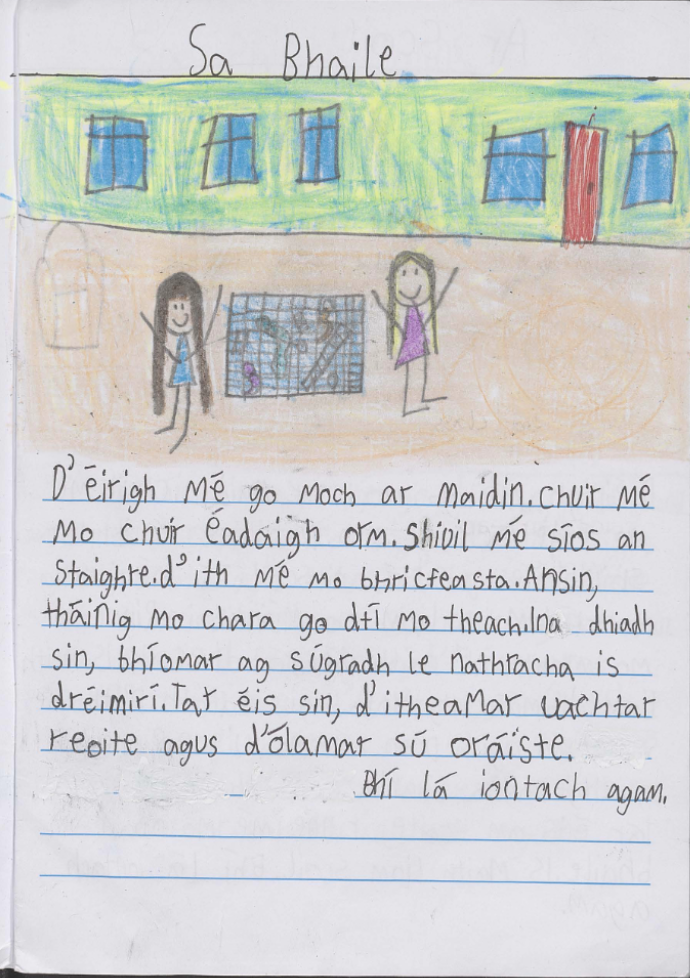 Sa Bhaile
D'éirigh mé go moch ar maidin. Chuir mé
mo chuir éadaigh orm. Shiúil mé síos an
staighre. d'ith mé mo bhricfeasta. Ansin,
tháinig mo chara go dtí mo theach. Ina dhiadh
sin, bhíomar ag súgradh le nathracha is
dréimirí. Tar éis sin, d'itheamar uachtar
reoite agus d'ólamar sú oráiste.
Bhí lá iontach agam.